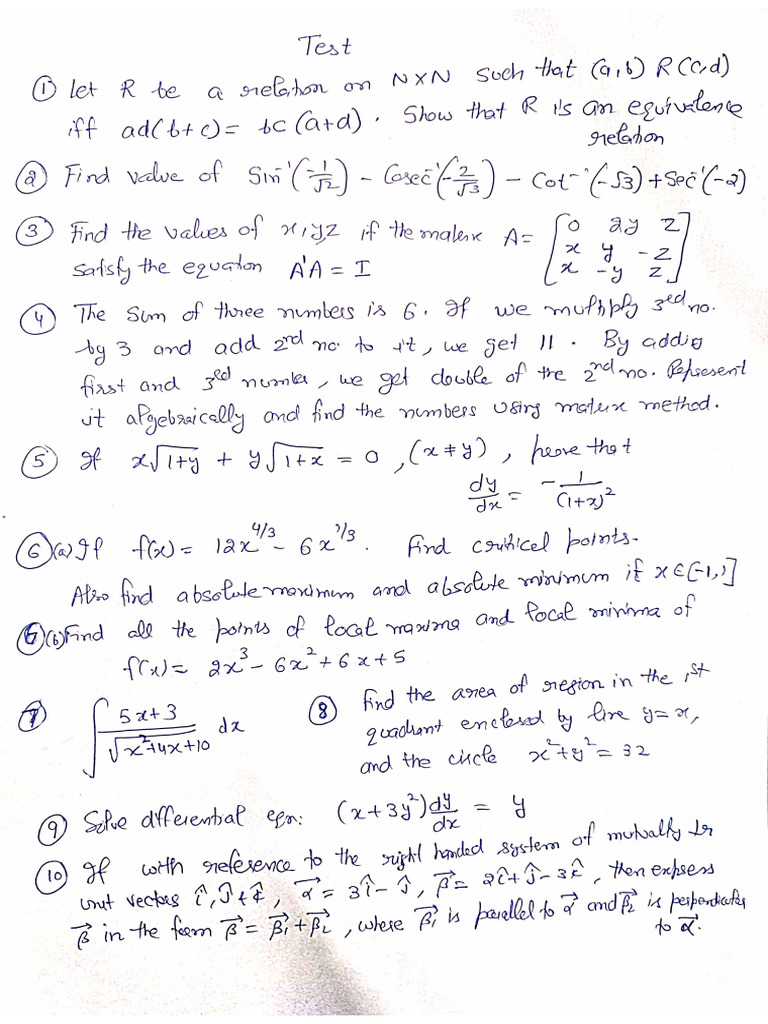 Test
① Let R be a relation on N×N such that (a,b) R (c,d)
iff ad(b+c) = bc(a+d). Show that R is an equivalence
relation
② Find value of Sin⁻¹(-1/√2) - Cosec⁻¹(-2/√3) - Cot⁻¹(-√3) + Sec⁻¹(-2)
③ Find the values of x,y,z if the matrix A = [0 2y z; x y -z; x -y z]
satisfy the equation A'A = I
④ The sum of three numbers is 6. If we multiply 3rd no.
by 3 and add 2nd no. to it, we get 11. By adding
first and 3rd number, we get double of the 2nd no. Represent
it algebraically and find the numbers using matrix method.
⑤ If x√1+y + y√1+x = 0, (x≠y), prove that
dy/dx = -1/(1+x)²
⑥(a) If f(x) = 12x^4/3 - 6x^1/3. Find critical points.
Also find absolute maximum and absolute minimum if x∈[-1,1]
⑥(b) Find all the points of local maxima and local minima of
f(x) = 2x³ - 6x² + 6x + 5
⑦ ∫ 5x+3/√x²+4x+10 dx
⑧ Find the area of region in the 1st
quadrant enclosed by line y=x,
and the circle x²+y²=32
⑨ Solve differential eqn: (x+3y²)dy/dx = y
⑩ If with reference to the right handed system of mutually ⊥r
unit vectors î, ĵ + k̂, α⃗ = 3î - ĵ, β⃗ = 2î+ĵ-3k̂, then express
β⃗ in the form β⃗ = β⃗₁+β⃗₂, where β⃗₁ is parallel to α⃗ and β⃗₂ is perpendicular
to α⃗.